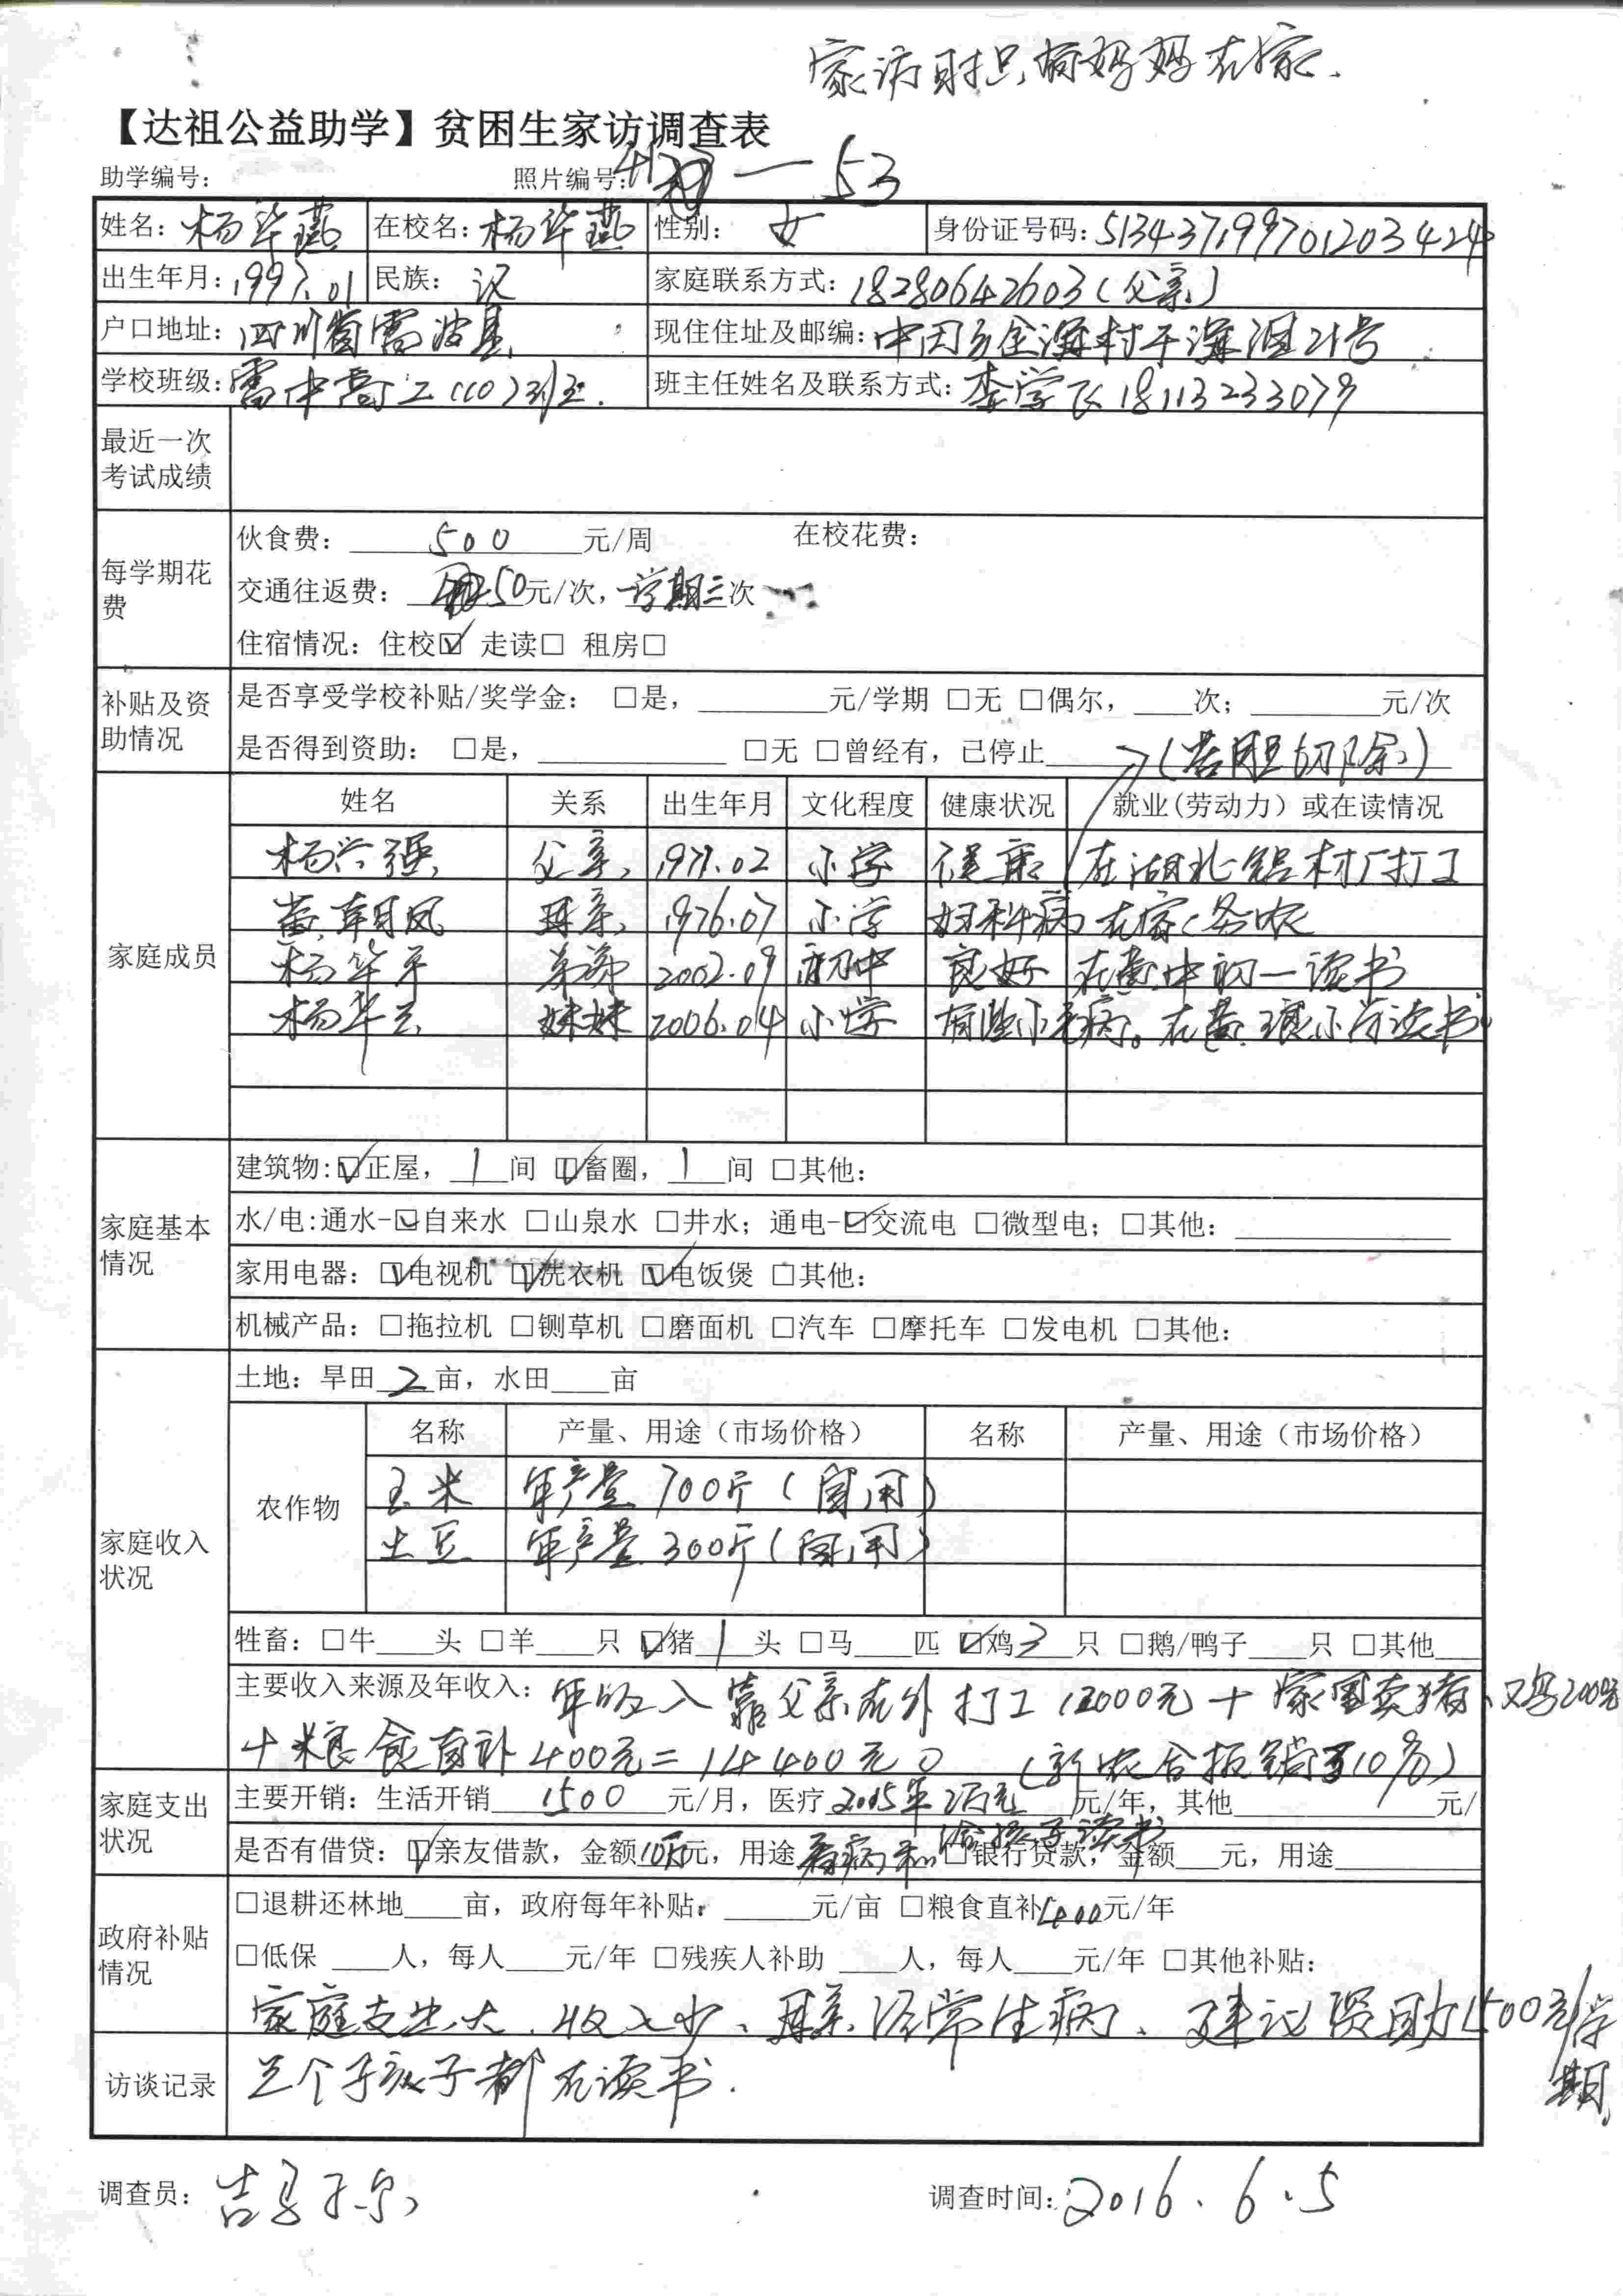 家访时只有妈妈在家.
【达祖公益助学】贫困生家访调查表
助学编号: 照片编号: — 53
姓名: 杨华燕 在校名: 杨华燕 性别: 女 身份证号码: 513437199701203424
出生年月: 1997.01 民族: 汉 家庭联系方式: 18280642603(父亲)
户口地址: 四川省雷波县 现住住址及邮编: 中田乡金 村干 21号
学校班级: 雷中高二(10)班 班主任姓名及联系方式: 李学 18113233079
最近一次考试成绩
每学期花费 伙食费: 500 元/周 在校花费:
交通往返费: 50元/次, 一学期三次
住宿情况: 住校☑ 走读□ 租房□
补贴及资助情况 是否享受学校补贴/奖学金: □是, ____元/学期 □无 □偶尔, ____次; ____元/次
是否得到资助: □是, ____ □无 □曾经有, 已停止____ (苦胆切除)
家庭成员 姓名 关系 出生年月 文化程度 健康状况 就业(劳动力)或在读情况
杨兴强 父亲 1971.02 小学 健康 在湖北铝材厂打工
黄朝凤 母亲 1976.07 小学 妇科病 在家务农
杨华平 弟弟 2002.09 初中 良好 在黄中初一读书
杨华兰 妹妹 2006.04 小学 有些小毛病。 在黄琅小学读书
家庭基本情况 建筑物:☑正屋, 1间 ☑畜圈, 1间 □其他:
水/电:通水-☑自来水 □山泉水 □井水; 通电-☑交流电 □微型电; □其他:____
家用电器: ☑电视机 ☑洗衣机 ☑电饭煲 □其他:
机械产品: □拖拉机 □铡草机 □磨面机 □汽车 □摩托车 □发电机 □其他:
家庭收入状况 土地: 旱田 2 亩, 水田____亩
农作物 名称 产量、用途(市场价格) 名称 产量、用途(市场价格)
玉米 年产量 700斤(自用)
土豆 年产量 300斤(自用)
牲畜: □牛____头 □羊____只 ☑猪 1 头 □马____匹 ☑鸡 3 只 □鹅/鸭子____只 □其他____
主要收入来源及年收入: 年收入靠父亲在外打工12000元+家里卖猪、鸡2000元
+粮食直补400元=14400元。 (新农合报销了10%)
家庭支出状况 主要开销: 生活开销 1500 元/月, 医疗 2015年2万元 元/年, 其他____元/
是否有借贷: ☑亲友借款, 金额10万元, 用途 看病和给孩子读书 □银行贷款, 金额____元, 用途____
政府补贴情况 □退耕还林地____亩, 政府每年补贴: ____元/亩 □粮食直补400元/年
□低保 ____人, 每人____元/年 □残疾人补助 ____人, 每人____元/年 □其他补贴:
家庭支出大、收入少、母亲经常生病、 建议资助1500元/学期.
访谈记录 三个孩子都在读书.
调查员: 调查时间: 2016.6.5